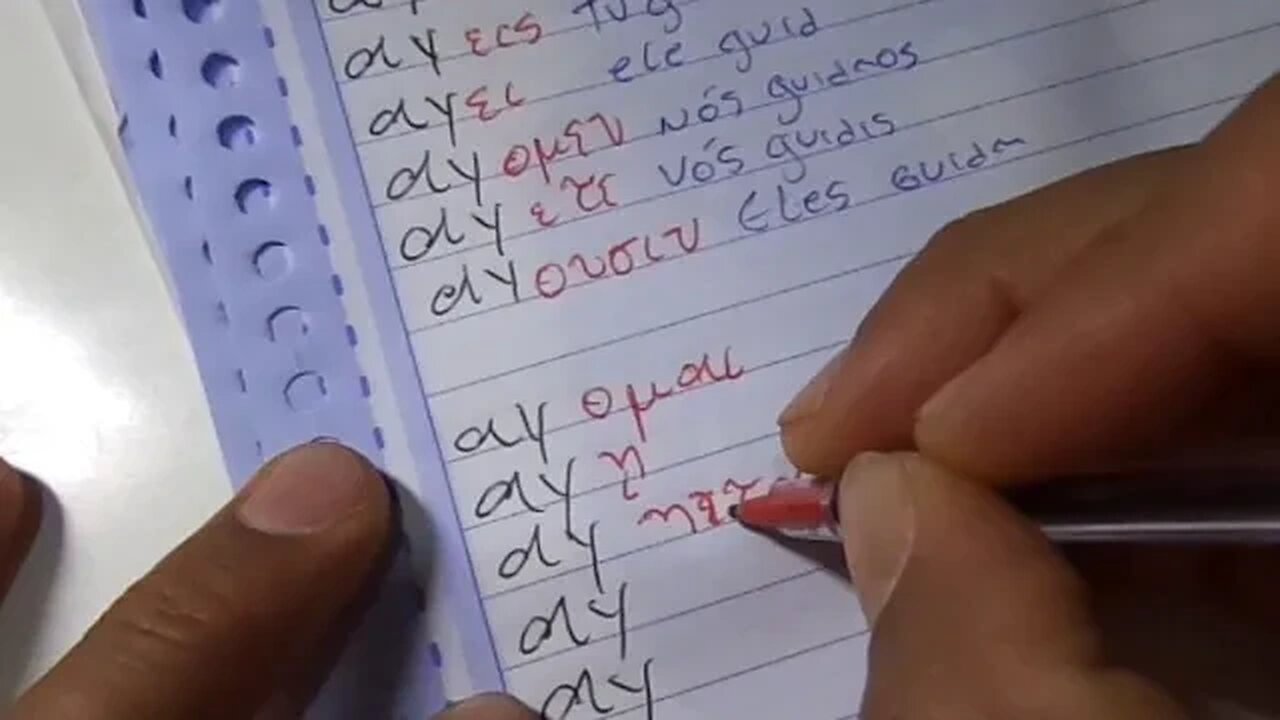 αγ εις tu g
αγ ει ele guid
αγ ομεν nós guidmos
αγ ετε vós guidis
αγ ουσιν Eles Guidm
αγ ομαι
αγ η
αγ
αγ
αγ